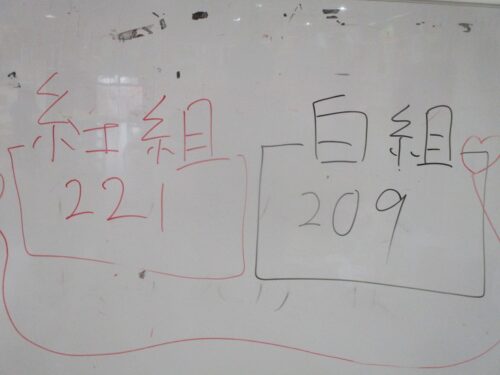 紅組
221
白組
209